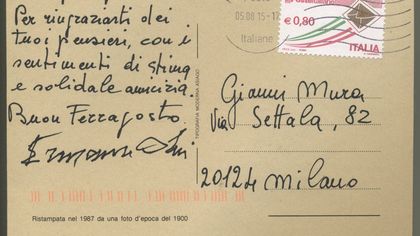 Per ringraziarti dei
tuoi pensieri, con i
sentimenti di stima
e solidale amicizia.
Buon Ferragosto.
Ristampata nel 1987 da una foto d'epoca del 1900
TIPOGRAFIA MODERNA ASIAGO
05.08 15-17
Italiane
€0,80
ITALIA
Gianni Mura
Via Settala, 82
20124 Milano